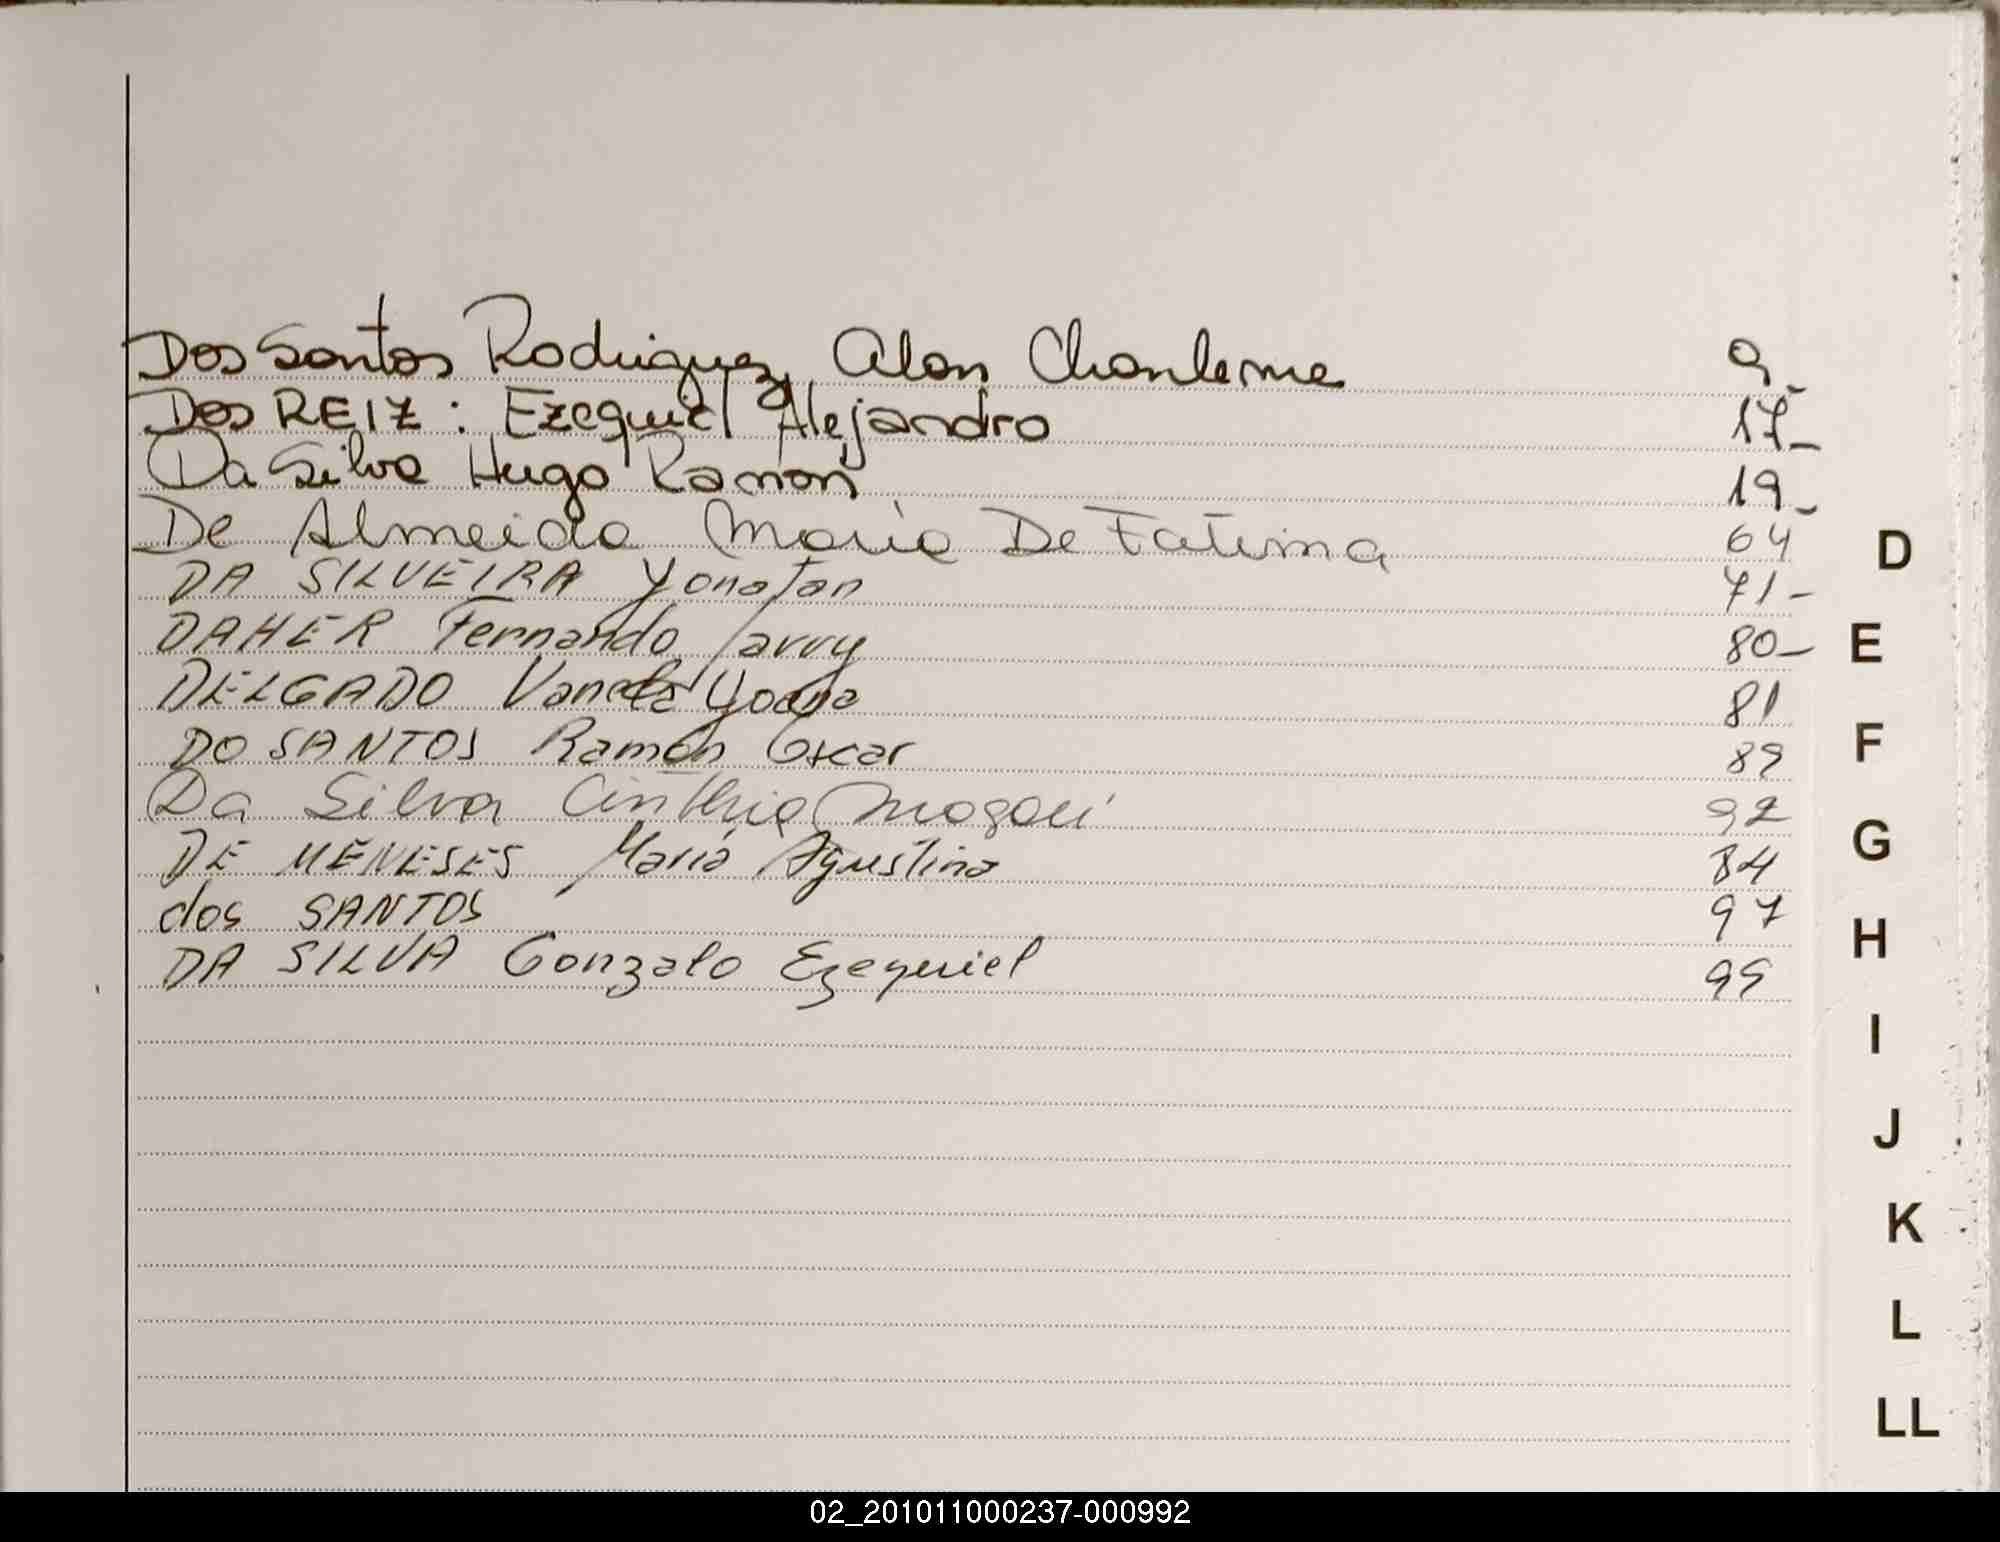 Dos Santos Rodriguez, Alan Charleme 9-
Dos REIZ: Ezequiel Alejandro 17-
Da Silva Hugo Ramon 19-
De Almeida Maria De Fatima 64
DA SILVEIRA Yonatan 71-
DAHER Fernando Javvy 80-
DELGADO Vanela Yoana 81
DO SANTOS Ramón Oscar 89
Da Silva Cinthia Magali 92
DE MENESES Maria Agustina 84
dos SANTOS 97
DA SILVA Gonzalo Ezequiel 99
D
E
F
G
H
I
J
K
L
LL
02_201011000237-000992